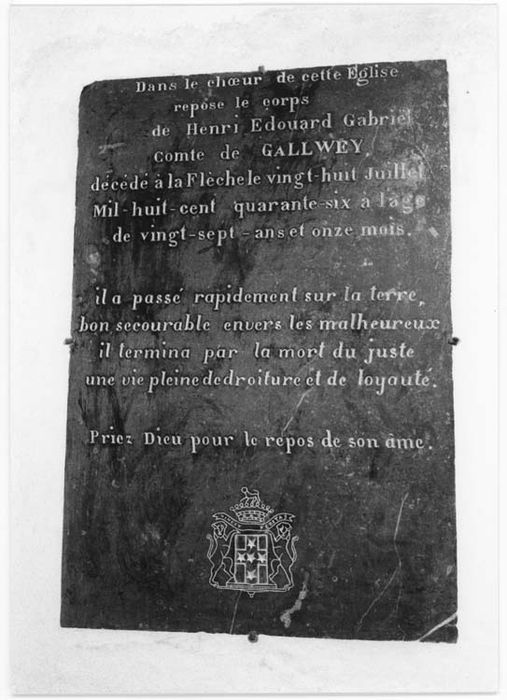 Dans le chœur de cette Eglise
repose le corps
de Henri Edouard Gabriel
Comte de GALLWEY,
décédé à la Flèche le vingt-huit Juillet
Mil-huit-cent quarante-six a l'age
de vingt-sept-ans et onze mois.
il a passé rapidement sur la terre,
bon secourable envers les malheureux
il termina par la mort du juste
une vie pleine de droiture et de loyauté.
Priez Dieu pour le repos de son âme.